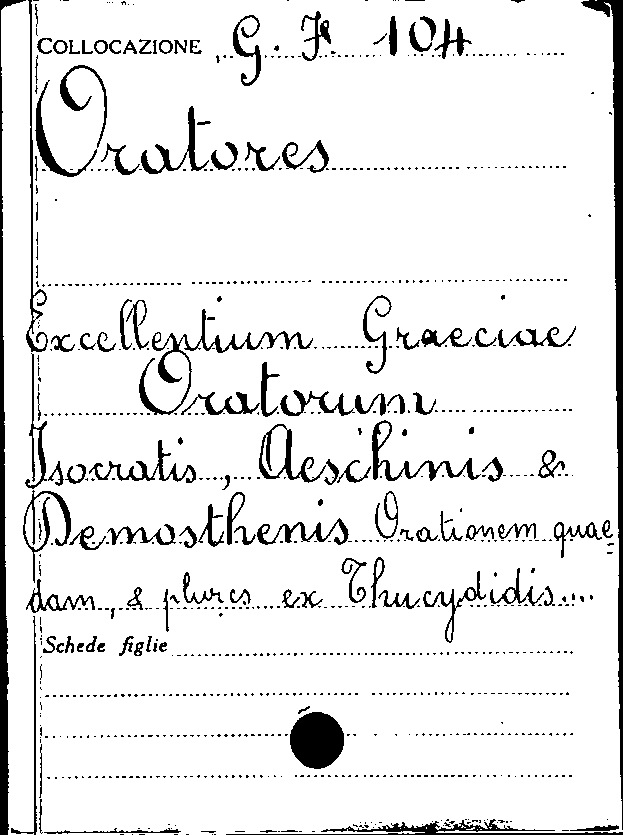 COLLOCAZIONE G. F. 104
Oratores
Excellentium Graeciae
Oratorum
Isocratis, Aeschinis &
Demosthenis Orationem quae=
dam, & plures ex Thucydidis....
Schede figlie